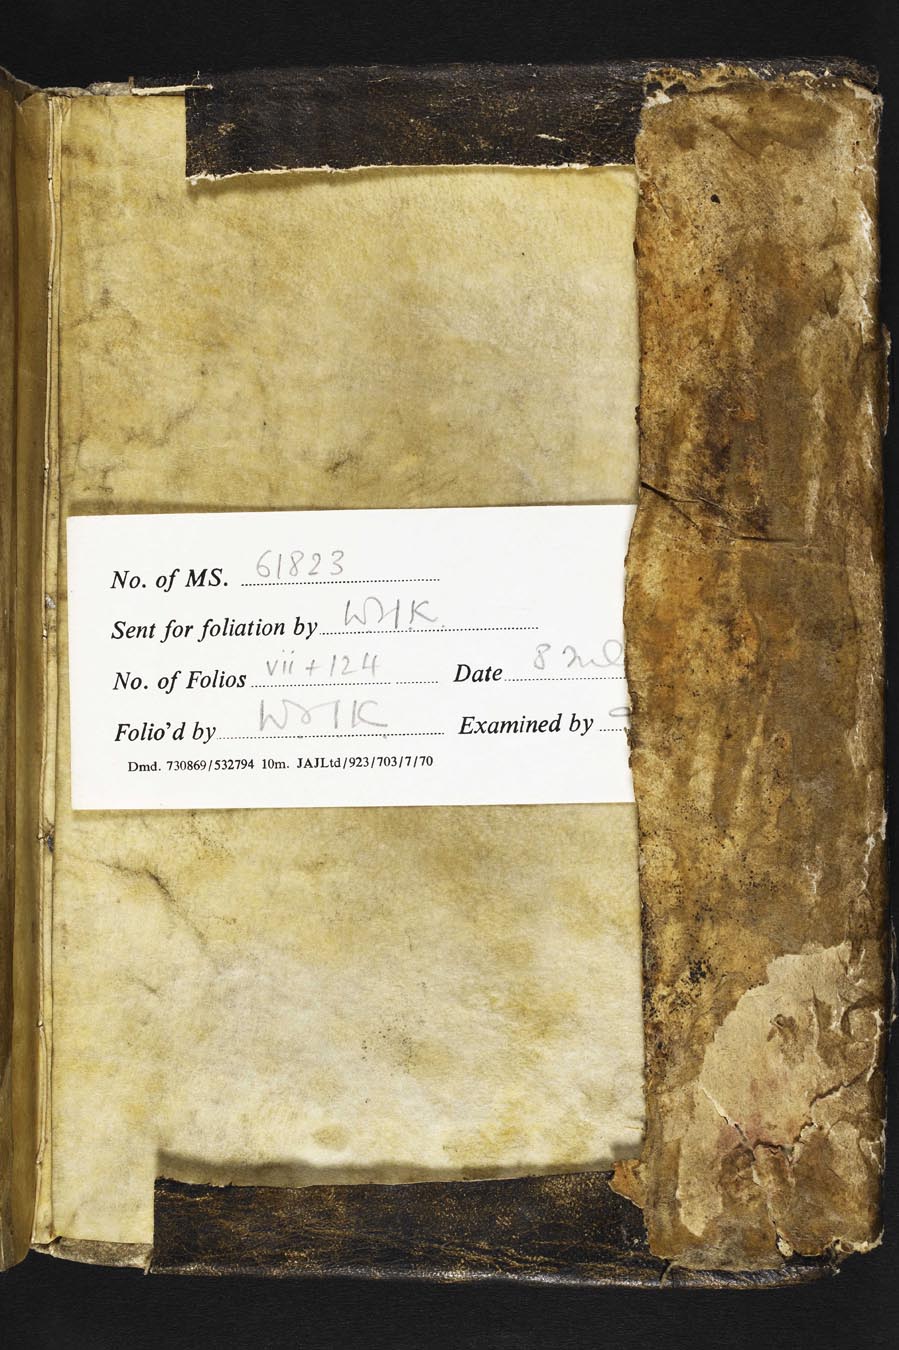 No. of MS. 61823
Sent for foliation by
No. of Folios vii + 124 Date 8
Folio'd by Examined by
Dmd. 730869/532794 10m. JAJLtd/923/703/7/70